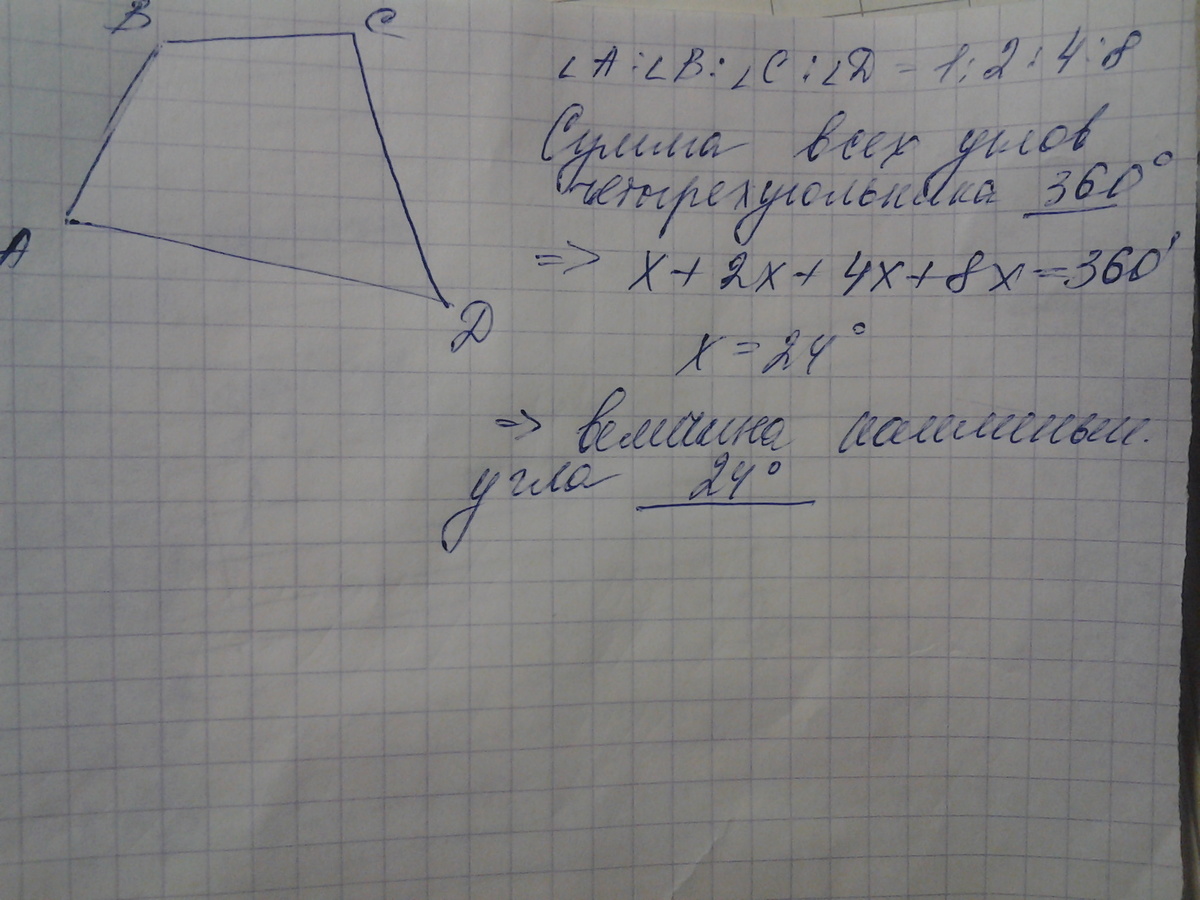 B C
∠A:∠B:∠C:∠D = 1:2:4:8
Сумма всех углов
четырехугольника 360°
=> x + 2x + 4x + 8x = 360°
A
D
x = 24°
=> величина наименьш.
угла 24°